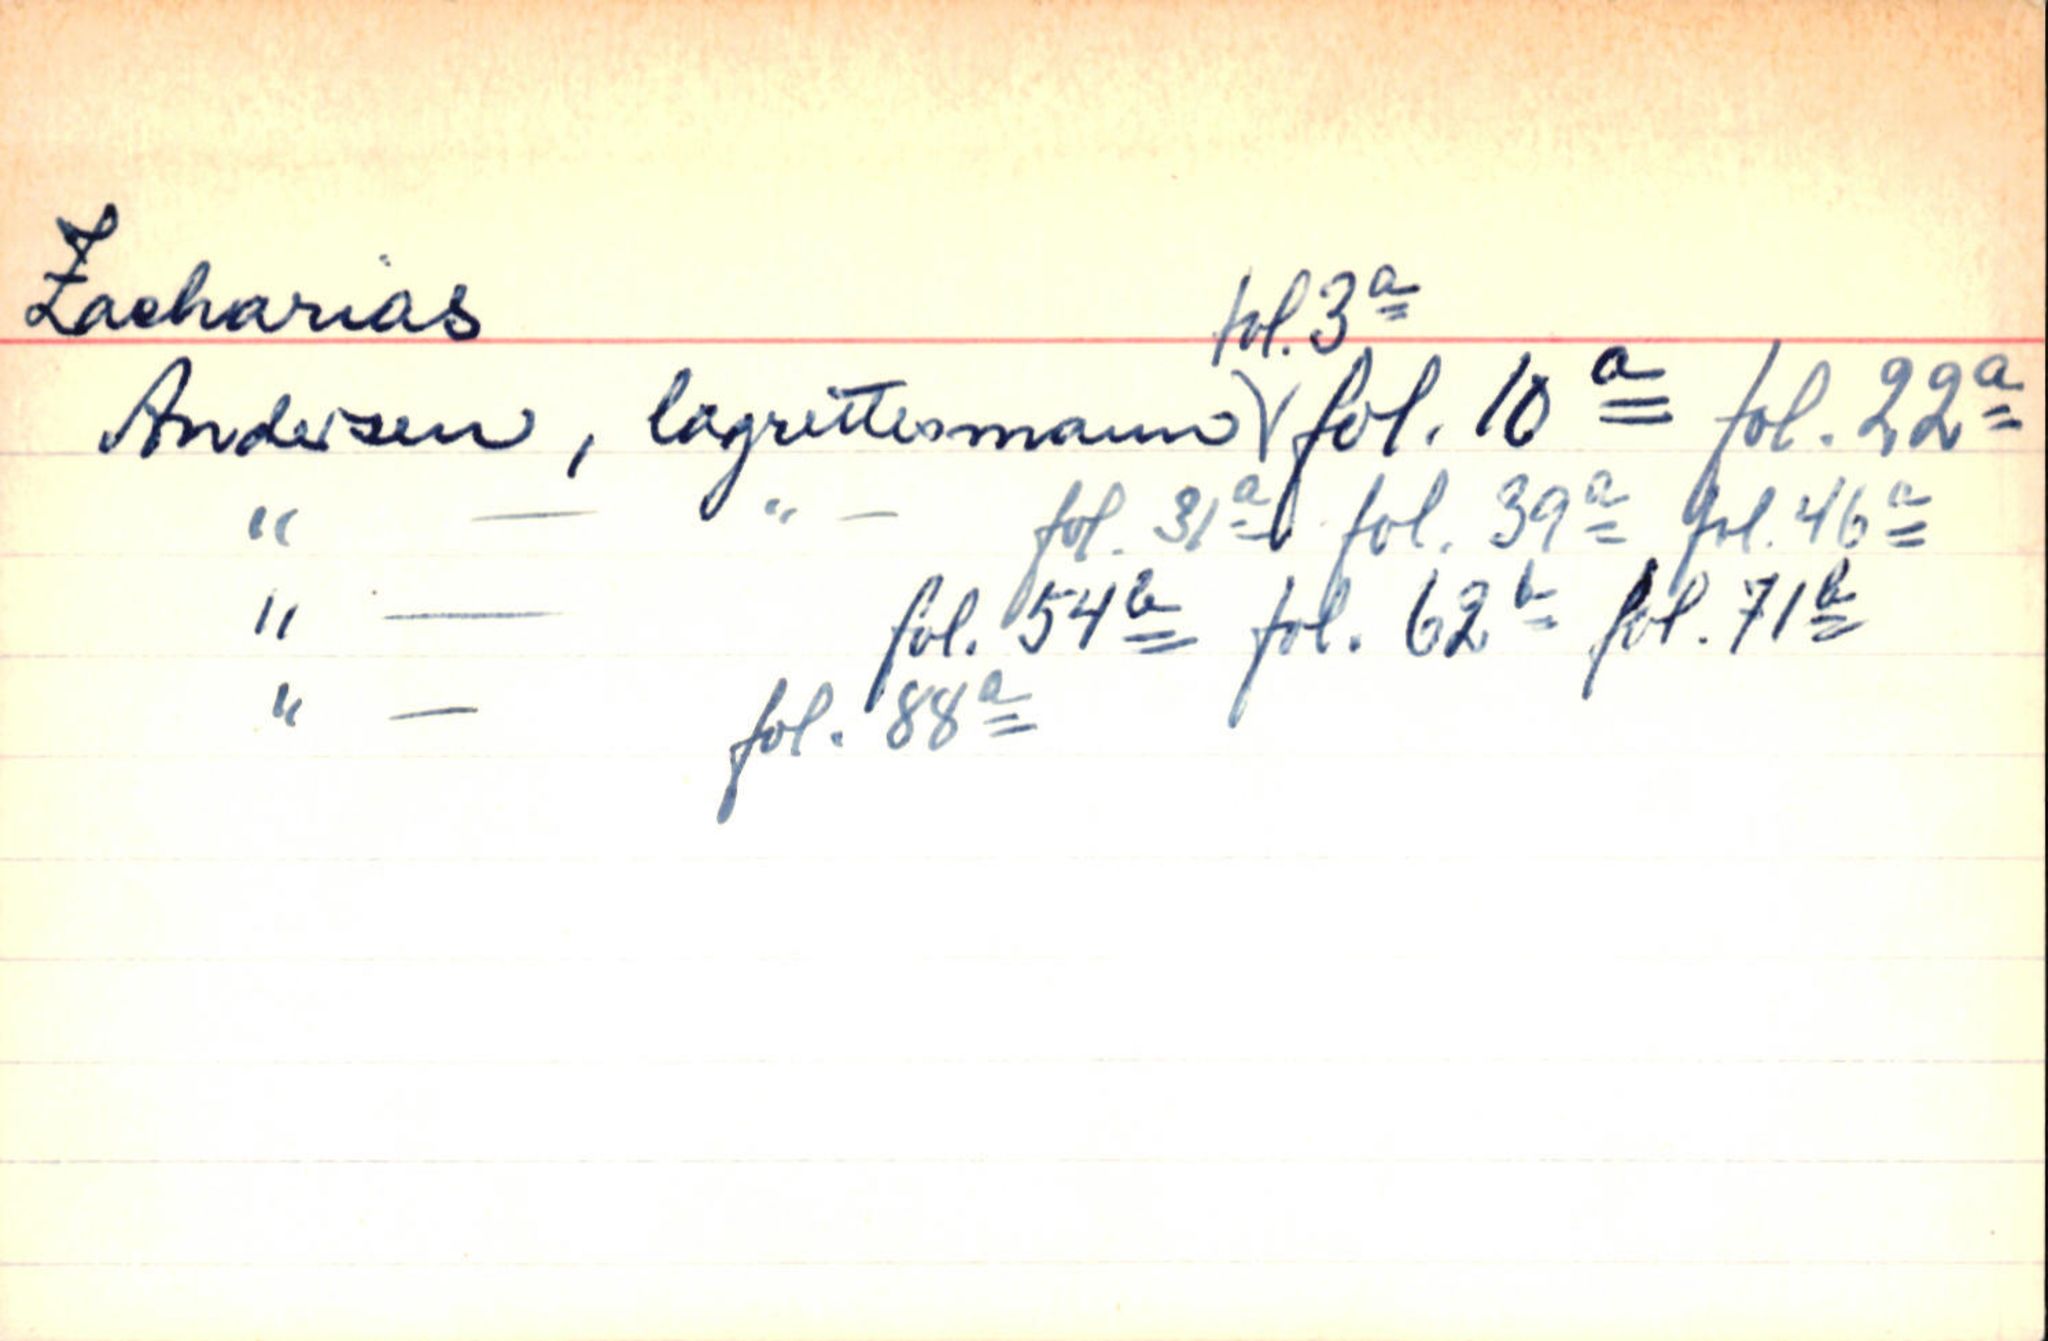 Zacharias
fol. 3a
Andersen, lagrettesmann fol. 10a fol. 22a
" — " — fol. 31a fol. 39a fol. 46a
" — fol. 54b fol. 62b fol. 71b
" — fol. 88a